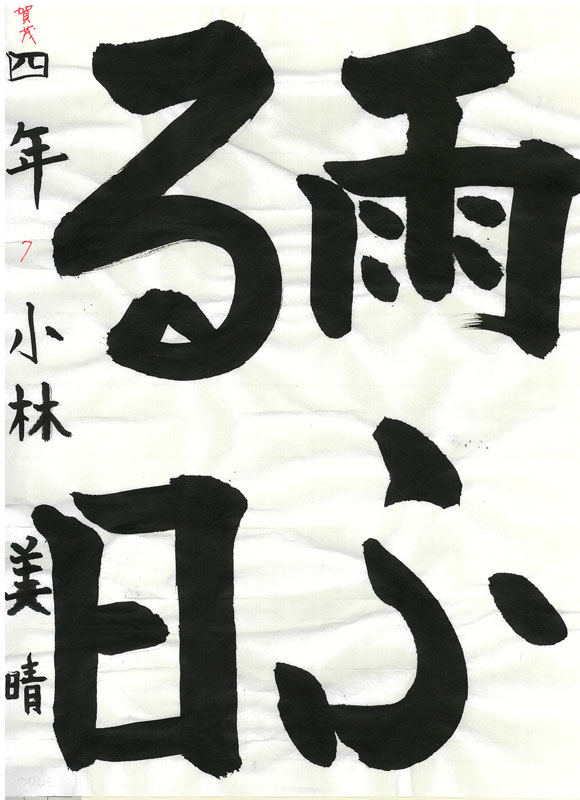 雨ふ
る日
賀茂
四年 7 小林 美晴